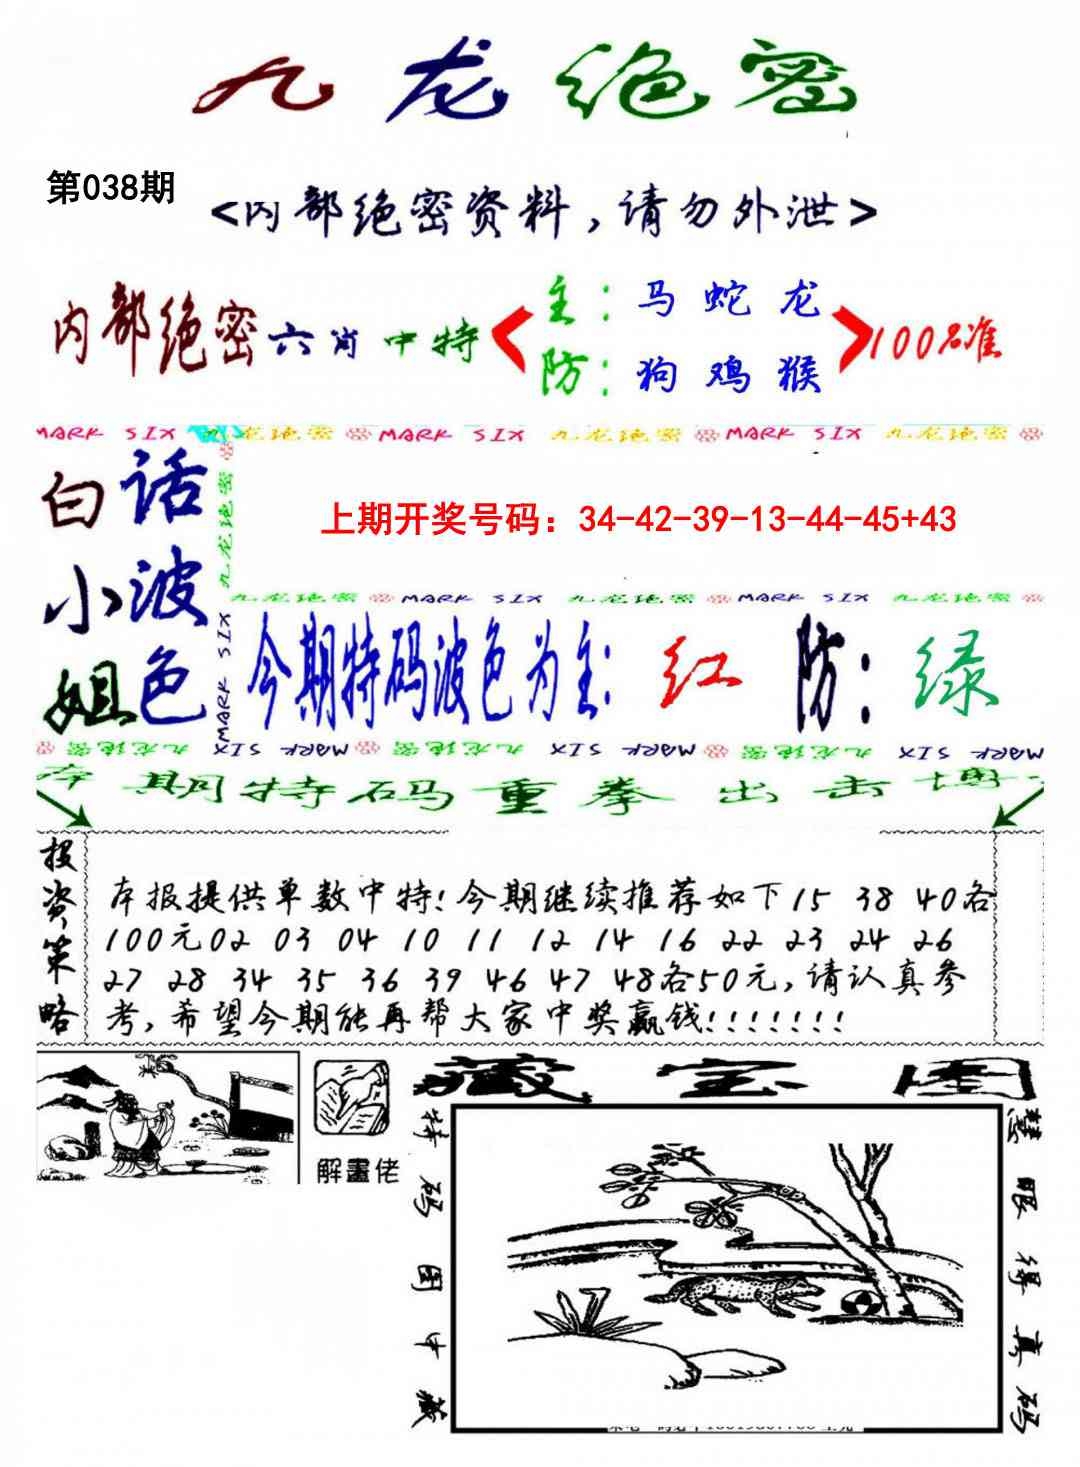 九龙绝密
第038期
<内部绝密资料,请勿外泄>
内部绝密六肖中特
主:马 蛇 龙
防:狗 鸡 猴
100%准
MARK SIX 九龙绝密 MARK SIX 九龙绝密 MARK SIX 九龙绝密
白话
小波
姐色
九龙绝密
MARK SIX
上期开奖号码：34-42-39-13-44-45+43
九龙绝密 MARK SIX 九龙绝密 MARK SIX 九龙绝密
今期特码波色为主:红 防:绿
九龙绝密 MARK SIX 九龙绝密 MARK SIX 九龙绝密 MARK SIX
本期特码重拳出击博
投资策略
本报提供单数中特!今期继续推荐如下15 38 40各
100元02 03 04 10 11 12 14 16 22 23 24 26
27 28 34 35 36 39 46 47 48各50元,请认真参
考,希望今期能再帮大家中奖赢钱!!!!!!!
解畫佬
藏宝图
特码图中藏
慧眼得真码